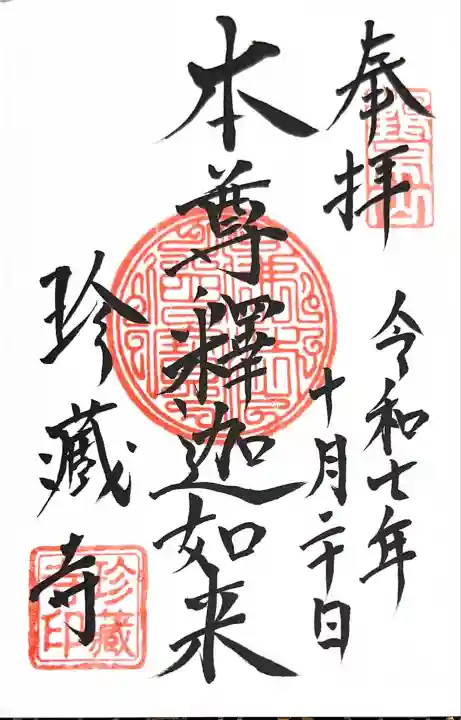 奉拝
令和七年
十月二十日
本尊釋迦如来
珍藏寺
珍藏寺印